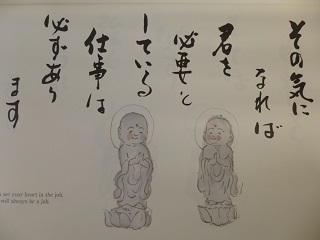 その気に
なれば
君を
必要と
している
仕事は
必ずあり
ます
set your heart in the job,
will always be a job.